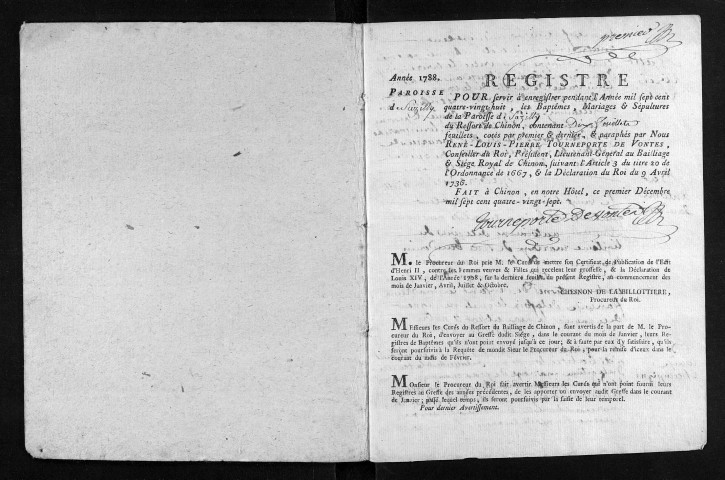 premier
Année 1788.
REGISTRE
PAROISSE
de Sazilly
POUR servir à enregistrer pendant l'Année mil sept cent
quatre-vingt-huit, les Baptêmes, Mariages & Sépultures
de la Paroisse de Sazilly
du Ressort de Chinon, contenant dix feuillets
feuillets, cotés par premier & dernier, & paraphés par Nous
RENÉ-LOUIS-PIERRE TOURNEPORTE DE VONTES,
Conseiller du Roi, Président, Lieutenant-Général au Bailliage
& Siége Royal de Chinon, suivant l'Article 3 du titre 20 de
l'Ordonnance de 1667, & la Déclaration du Roi du 9 Avril
1736.
FAIT à Chinon, en notre Hôtel, ce premier Décembre
mil sept cent quatre-vingt-sept.
Tourneporte Devontes
M. le Procureur du Roi prie M. le Curé de mettre son Certificat de Publication de l'Edit
d'Henri II, contre les Femmes veuves & Filles qui recelent leur grossesse, & la Déclaration de
Louis XIV, de l'Année 1708, sur la derniere feuille du présent Registre, au commencement des
mois de Janvier, Avril, Juillet & Octobre.
CHESNON DE LA BILLOTTIERE,
Procureur du Roi.
Messieurs les Curés du Ressort du Bailliage de Chinon, sont avertis de la part de M. le Pro-
cureur du Roi, d'envoyer au Greffe dudit Siége, dans le courant du mois de Janvier, leurs Re-
gistres de Baptêmes qu'ils n'ont point envoyé jusqu'à ce jour; & à faute par eux d'y satisfaire, qu'ils
seront poursuivis à la Requête de mondit Sieur le Procureur du Roi, pour la remise d'iceux dans le
courant du mois de Février.
Monsieur le Procureur du Roi fait avertir Messieurs les Curés qui n'ont point fourni leurs
Registres au Greffe des années précédentes, de les apporter ou envoyer audit Greffe dans le courant
de Janvier; passé lequel temps, ils seront poursuivis par la saisie de leur temporel.
Pour dernier Avertissement.